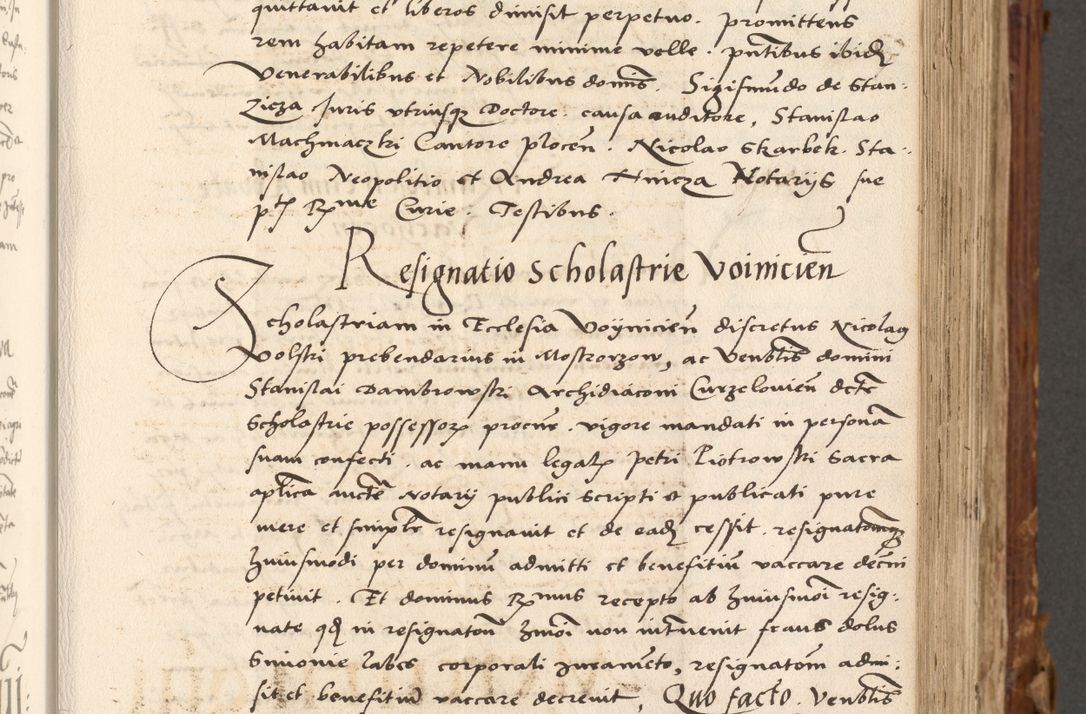 quittavit et liberos dimisit perpetuo. promittens
rem habitam repetere minime velle. pntibus ibid
Venerabilibus et Nobilibus domis. Sigismudo de Stan-
zicza Juris utriusq Doctore. causa auditore, Stanislao
Machmaczki Cantore plocen. Nicolao Skarbek. Sta-
nislao Neopolitio et Andrea Hincza Notarijs sue
pt Rme Curie. Testibus.
Resignatio Scholastrie Voinicien
Scholastriam in Ecclesia Voynicien discretus Nicolaq
Volski prebendarius in Mostrorzow, ac Venblis domini
Stanislai Dambrowski Archidiaconi Curzelovien dcte
Scholastrie possessor procur. vigore mandati in persona
suam confecti. ac manu legal Petri Piotrowski Sacra
aplica aucte Notarij publici scripti et publicati pure
mere et simplr resignavit et de ead cessit. resignatomq
huiusmodi per dominu admitti et benefitiu vaccare decni
petivit. Et dominus Rmus recepto ab huiusmoi resig-
nate qd in resignaton hmoi non intvenit fraus dolus
Simonie labes corporali iurameto, resignatom admi-
sit et benefitiu vaccare decrevit, Quo facto. Venblis